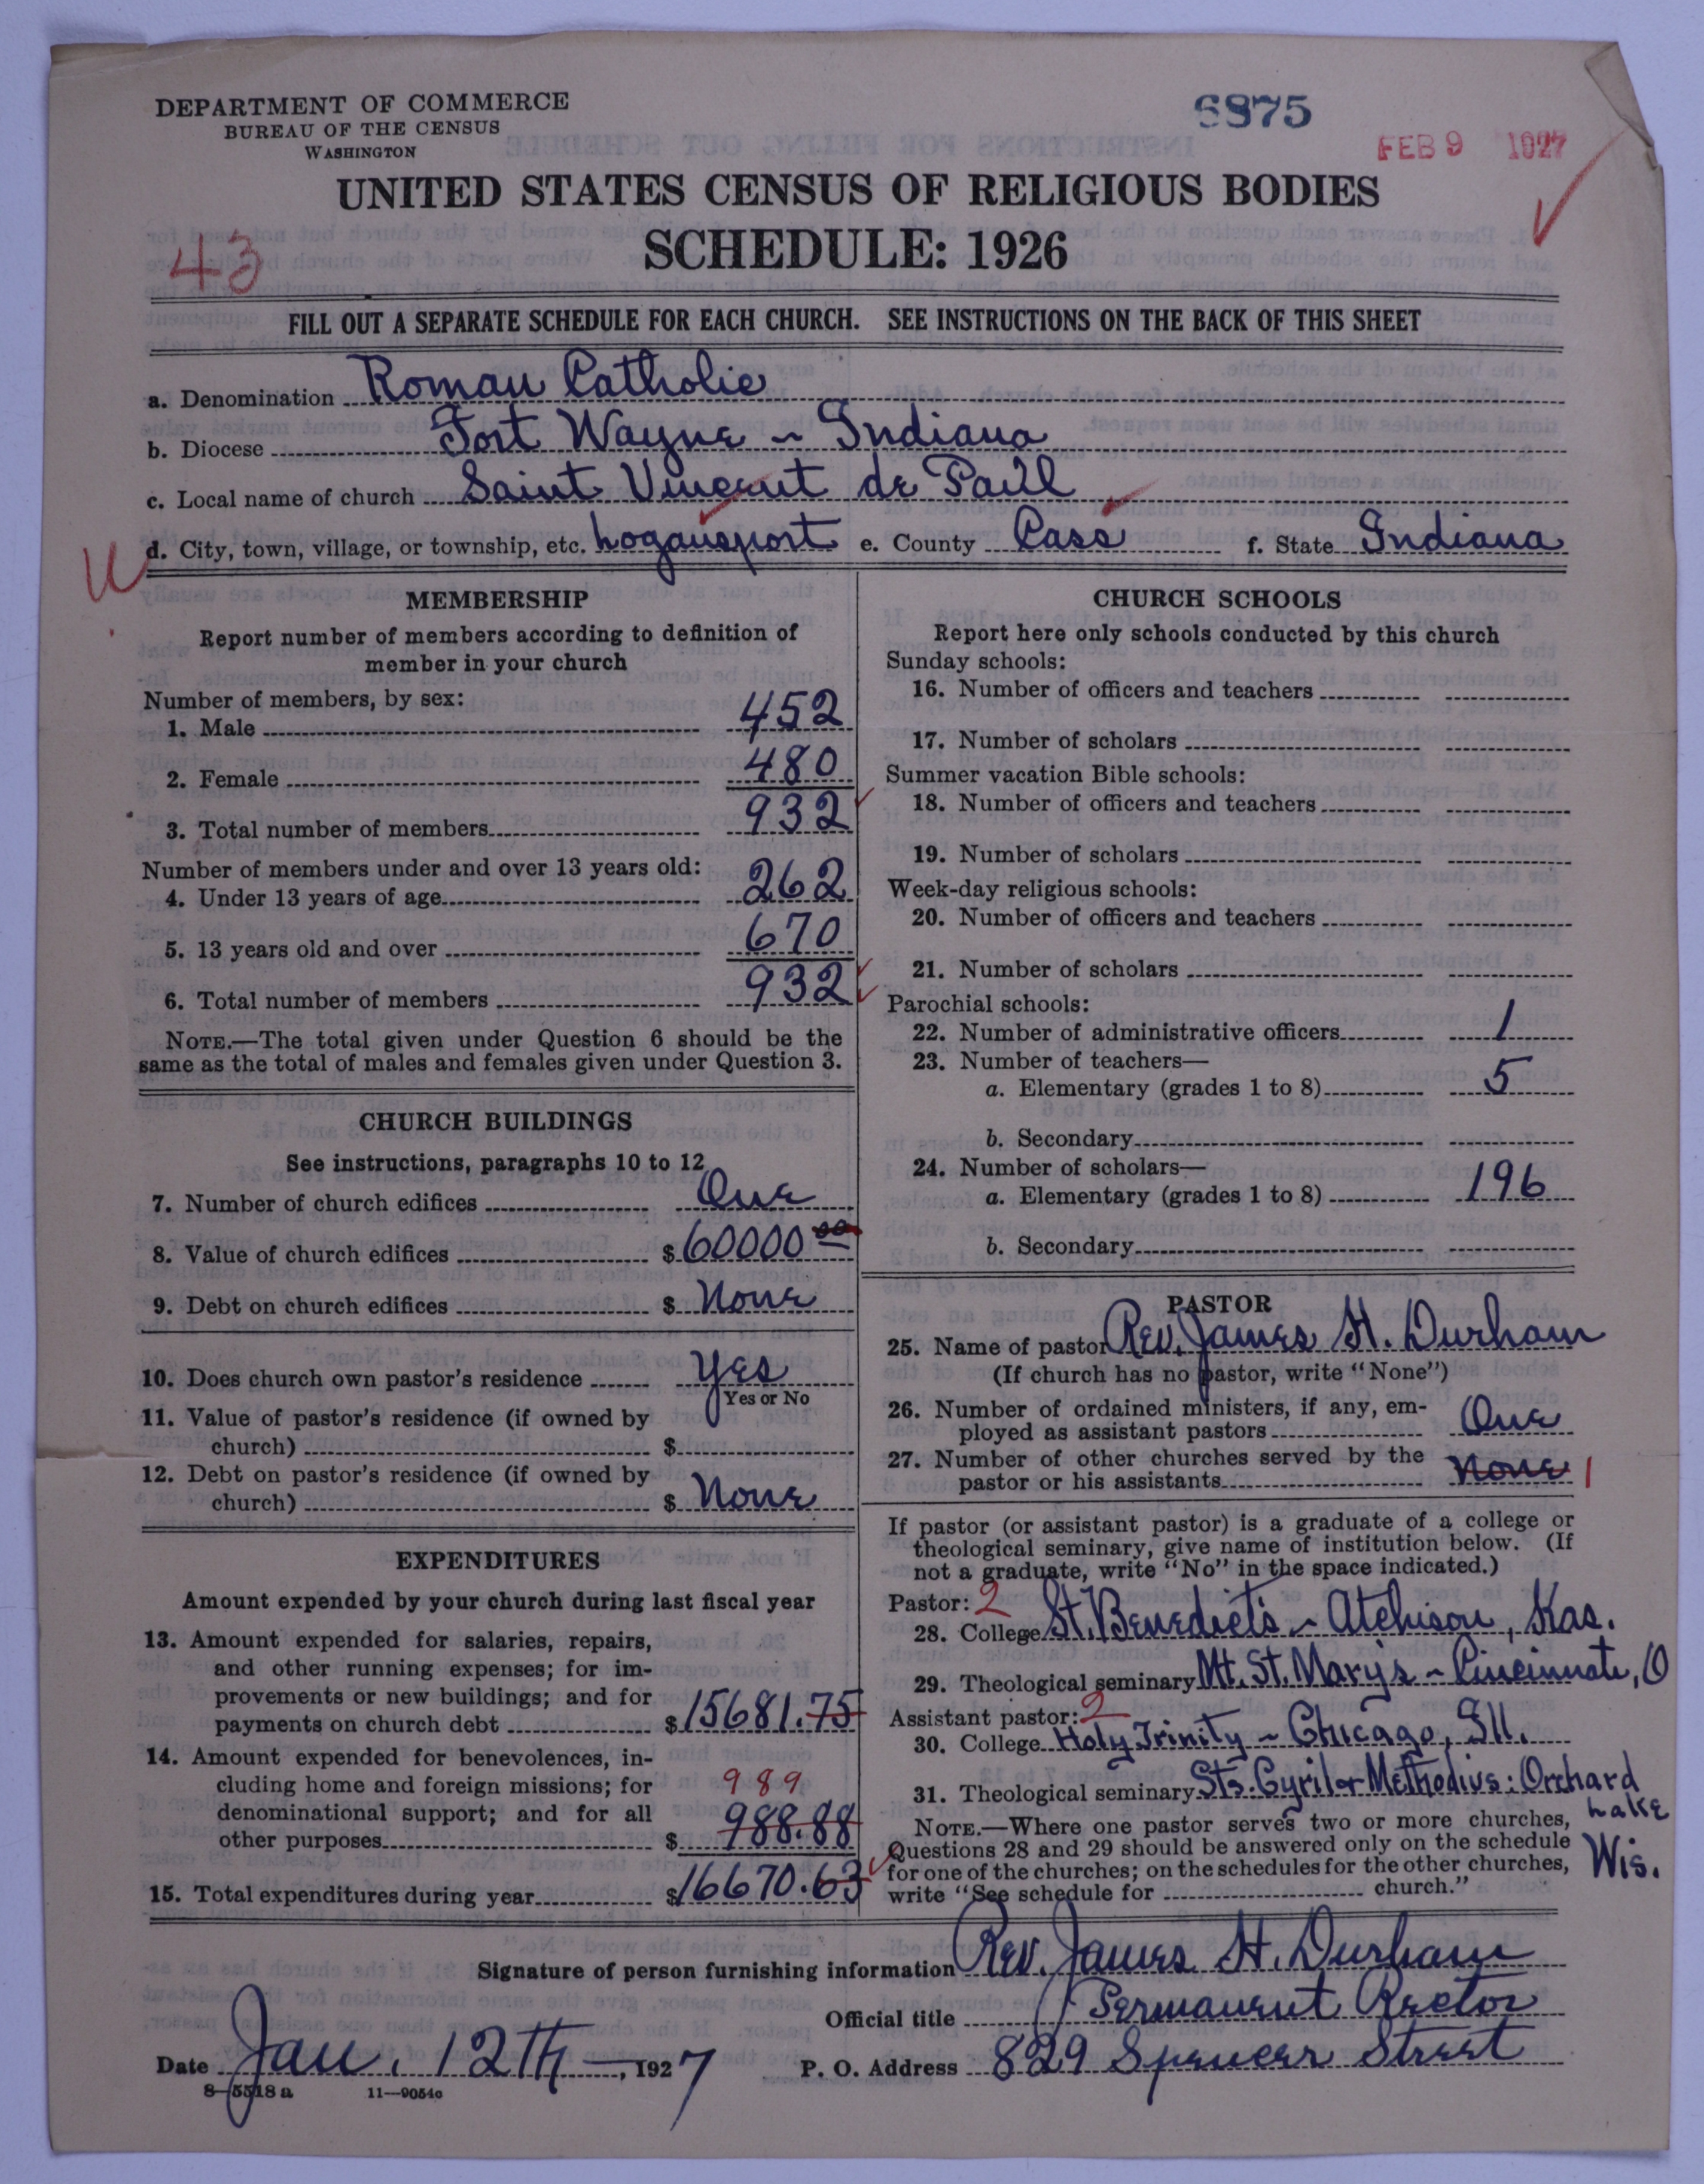 DEPARTMENT OF COMMERCE
BUREAU OF THE CENSUS
WASHINGTON
6875
FEB 9 1927
UNITED STATES CENSUS OF RELIGIOUS BODIES
43
SCHEDULE: 1926
FILL OUT A SEPARATE SCHEDULE FOR EACH CHURCH. SEE INSTRUCTIONS ON THE BACK OF THIS SHEET
a. Denomination Roman Catholic
b. Diocese Fort Wayne ~ Indiana
c. Local name of church Saint Vincent de Paul
d. City, town, village, or township, etc. Logansport e. County Cass f. State Indiana
MEMBERSHIP
Report number of members according to definition of
member in your church
Number of members, by sex:
1. Male 452
2. Female 480
3. Total number of members 932
Number of members under and over 13 years old:
4. Under 13 years of age 262
5. 13 years old and over 670
6. Total number of members 932
NOTE.—The total given under Question 6 should be the
same as the total of males and females given under Question 3.
CHURCH BUILDINGS
See instructions, paragraphs 10 to 12
7. Number of church edifices One
8. Value of church edifices $60000 00
9. Debt on church edifices $ None
10. Does church own pastor's residence Yes
Yes or No
11. Value of pastor's residence (if owned by
church) $
12. Debt on pastor's residence (if owned by
church) $ None
EXPENDITURES
Amount expended by your church during last fiscal year
13. Amount expended for salaries, repairs,
and other running expenses; for im-
provements or new buildings; and for
payments on church debt $15681.75
14. Amount expended for benevolences, in-
cluding home and foreign missions; for 989
denominational support; and for all
other purposes $ 988.88
15. Total expenditures during year $16670.63
CHURCH SCHOOLS
Report here only schools conducted by this church
Sunday schools:
16. Number of officers and teachers
17. Number of scholars
Summer vacation Bible schools:
18. Number of officers and teachers
19. Number of scholars
Week-day religious schools:
20. Number of officers and teachers
21. Number of scholars
Parochial schools:
22. Number of administrative officers 1
23. Number of teachers—
a. Elementary (grades 1 to 8) 5
b. Secondary
24. Number of scholars—
a. Elementary (grades 1 to 8) 196
b. Secondary
PASTOR
25. Name of pastor Rev. James H. Durham
(If church has no pastor, write "None")
26. Number of ordained ministers, if any, em-
ployed as assistant pastors One
27. Number of other churches served by the
pastor or his assistants None 1
If pastor (or assistant pastor) is a graduate of a college or
theological seminary, give name of institution below. (If
not a graduate, write "No" in the space indicated.)
Pastor: 2
28. College St. Benedict's ~ Atchison, Kas.
29. Theological seminary Mt. St. Mary's ~ Cincinnati, O
Assistant pastor: 2
30. College Holy Trinity ~ Chicago, Ill.
31. Theological seminary Sts. Cyril & Methodius: Orchard
Lake
Wis.
NOTE.—Where one pastor serves two or more churches,
Questions 28 and 29 should be answered only on the schedule
for one of the churches; on the schedules for the other churches,
write "See schedule for church."
Signature of person furnishing information Rev. James H. Durham
Official title Permanent Rector
Date Jan. 12th —, 1927 P. O. Address 829 Spencer Street
8—5518 a 11—9054c